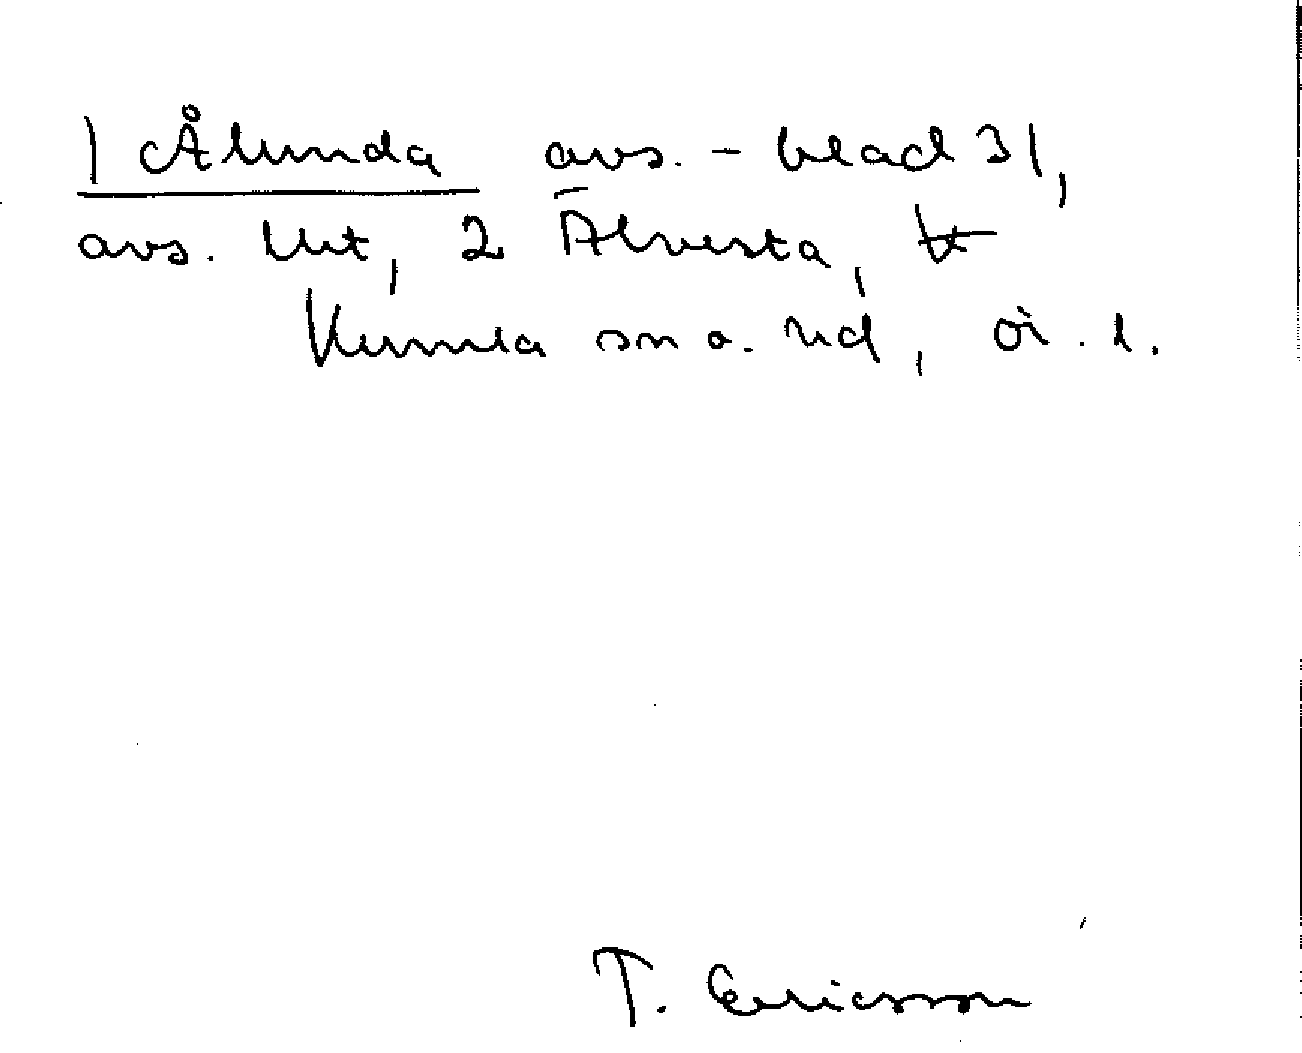 1 Ålunda avs. - blad 31,
avs. Utt, 2 Älvesta,
Kumla sn o. hd, Ör. l.
T. Ericsson